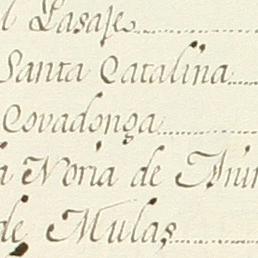 l Pasaje
Santa Catalina
Covadonga
a Noria de
de Mulas